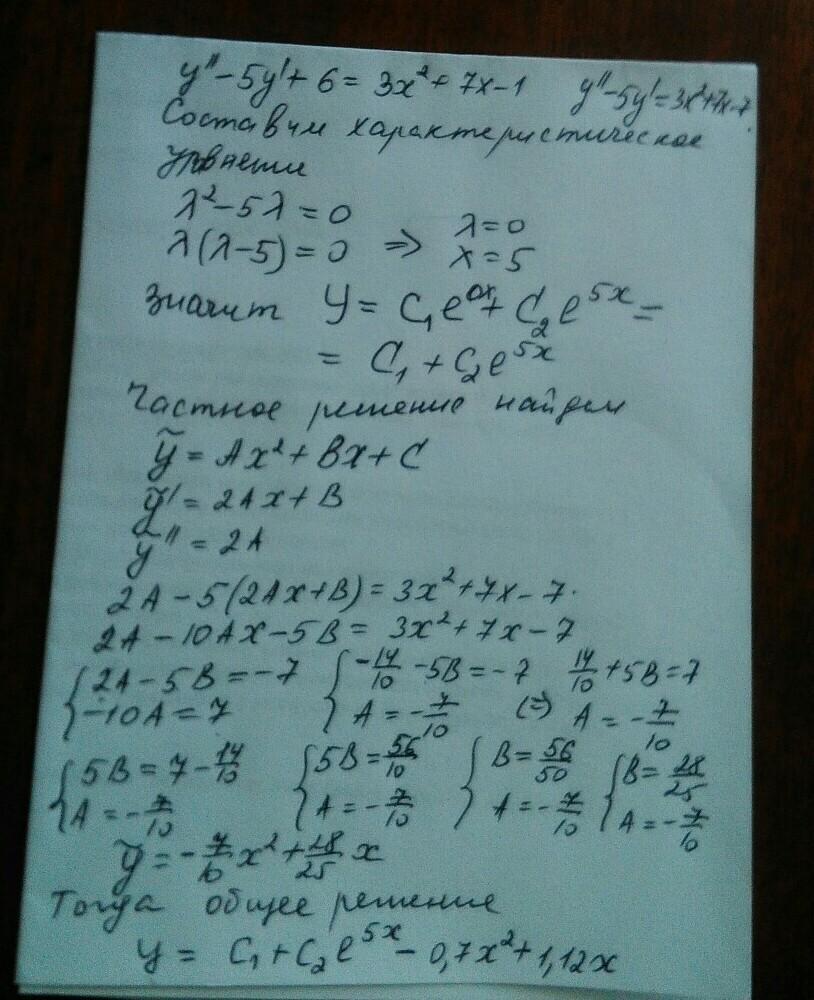 y'' - 5y' + 6 = 3x² + 7x - 1    y'' - 5y' = 3x² + 7x - 7
Составим характеристическое
λ² - 5λ = 0
λ(λ - 5) = 0 ⇒ λ = 0
x = 5
значит y = C₁e^{0x} + C₂e^{5x} =
= C₁ + C₂e^{5x}
Частное решение найдем
ỹ = Ax² + Bx + C
ỹ' = 2Ax + B
ỹ'' = 2A
2A - 5(2Ax + B) = 3x² + 7x - 7.
2A - 10Ax - 5B = 3x² + 7x - 7
{ 2A - 5B = -7    { -14/10 - 5B = -7    14/10 + 5B = 7
-10A = 7    A = -7/10    (=) A = -7/10
{ 5B = 7 - 14/10    { 5B = 56/10    { B = 56/50    { B = 28/25
A = -7/10    A = -7/10    A = -7/10    A = -7/10
ỹ = -7/10 x² + 28/25 x
Тогда общее решение
y = C₁ + C₂e^{5x} - 0,7x² + 1,12x